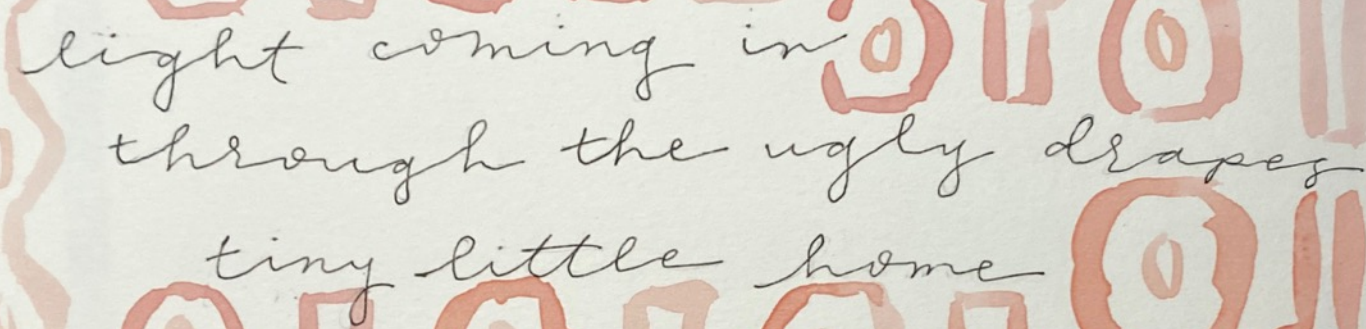 light coming in
through the ugly drapes
tiny little home